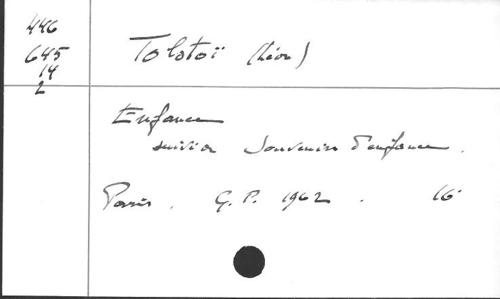 446
645
14
2
Tolstoï (Léon)
Enfance
suivi de Souvenirs d'enfance.
Paris. G.P. 1962. 16°